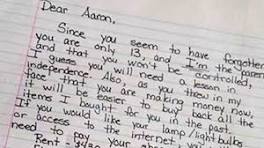 Dear Aaron,
Since you seem to have forgotten
you are only 13, and I'm the parent
and that you won't be controlled,
I guess you will need a lesson in
independence. Also, as you threw in my
face that you are making money now,
it will be easier to buy back all the
items I bought for you in the past.
If you would like your lamp/lightbulbs
or access to the internet, you
need to pay your
Rent